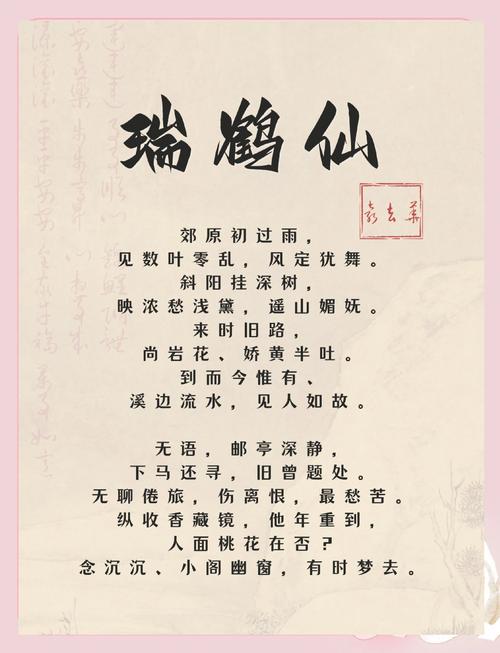 瑞鹤仙
郊原初过雨，
见数叶零乱，风定犹舞。
斜阳挂深树，
映浓愁浅黛，遥山媚妩。
来时旧路，
尚岩花、娇黄半吐。
到而今惟有、
溪边流水，见人如故。
无语，邮亭深静，
下马还寻，旧曾题处。
无聊倦旅，伤离恨，最愁苦。
纵收香藏镜，他年重到，
人面桃花在否？
念沉沉、小阁幽窗，有时梦去。